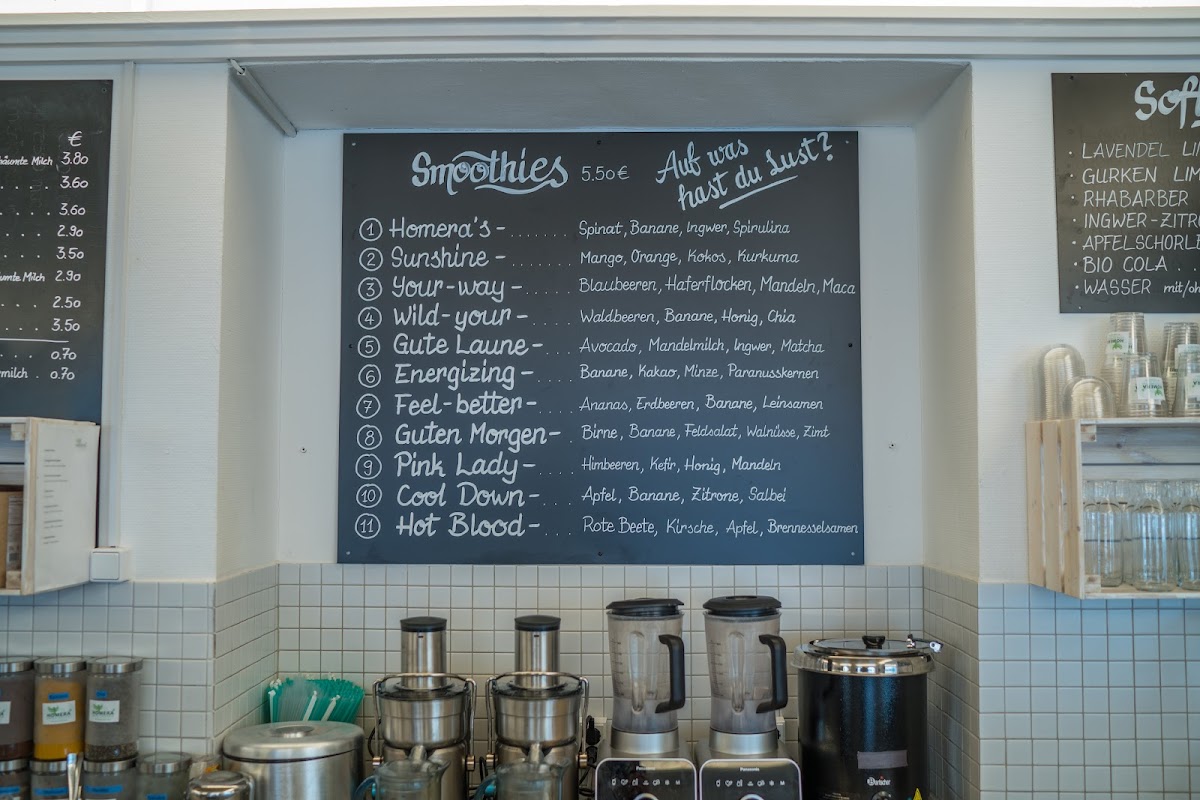 €
3.80
3.60
3.60
2.90
3.50
2.90
2.50
3.50
0.70
0.70
Smoothies 5.50€ Auf was hast du Lust?
1 Homera's - ....... Spinat, Banane, Ingwer, Spirulina
2 Sunshine - ....... Mango, Orange, Kokos, Kurkuma
3 Your-way - ..... Blaubeeren, Haferflocken, Mandeln, Maca
4 Wild-your - ..... Waldbeeren, Banane, Honig, Chia
5 Gute Laune - .... Avocado, Mandelmilch, Ingwer, Matcha
6 Energizing - .... Banane, Kakao, Minze, Paranusskernen
7 Feel-better - .... Ananas, Erdbeeren, Banane, Leinsamen
8 Guten Morgen - . Birne, Banane, Feldsalat, Walnüsse, Zimt
9 Pink Lady - .... Himbeeren, Kefir, Honig, Mandeln
10 Cool Down - .... Apfel, Banane, Zitrone, Salbei
11 Hot Blood - .... Rote Beete, Kirsche, Apfel, Brennesselsamen
· LAVENDEL
· GURKEN
· RHABARBER
· INGWER-ZITR
· APFELSCHORLE
· BIO COLA . .
· WASSER mit/oh
HOMERA
HOMERA
Panasonic
Panasonic
Bartscher